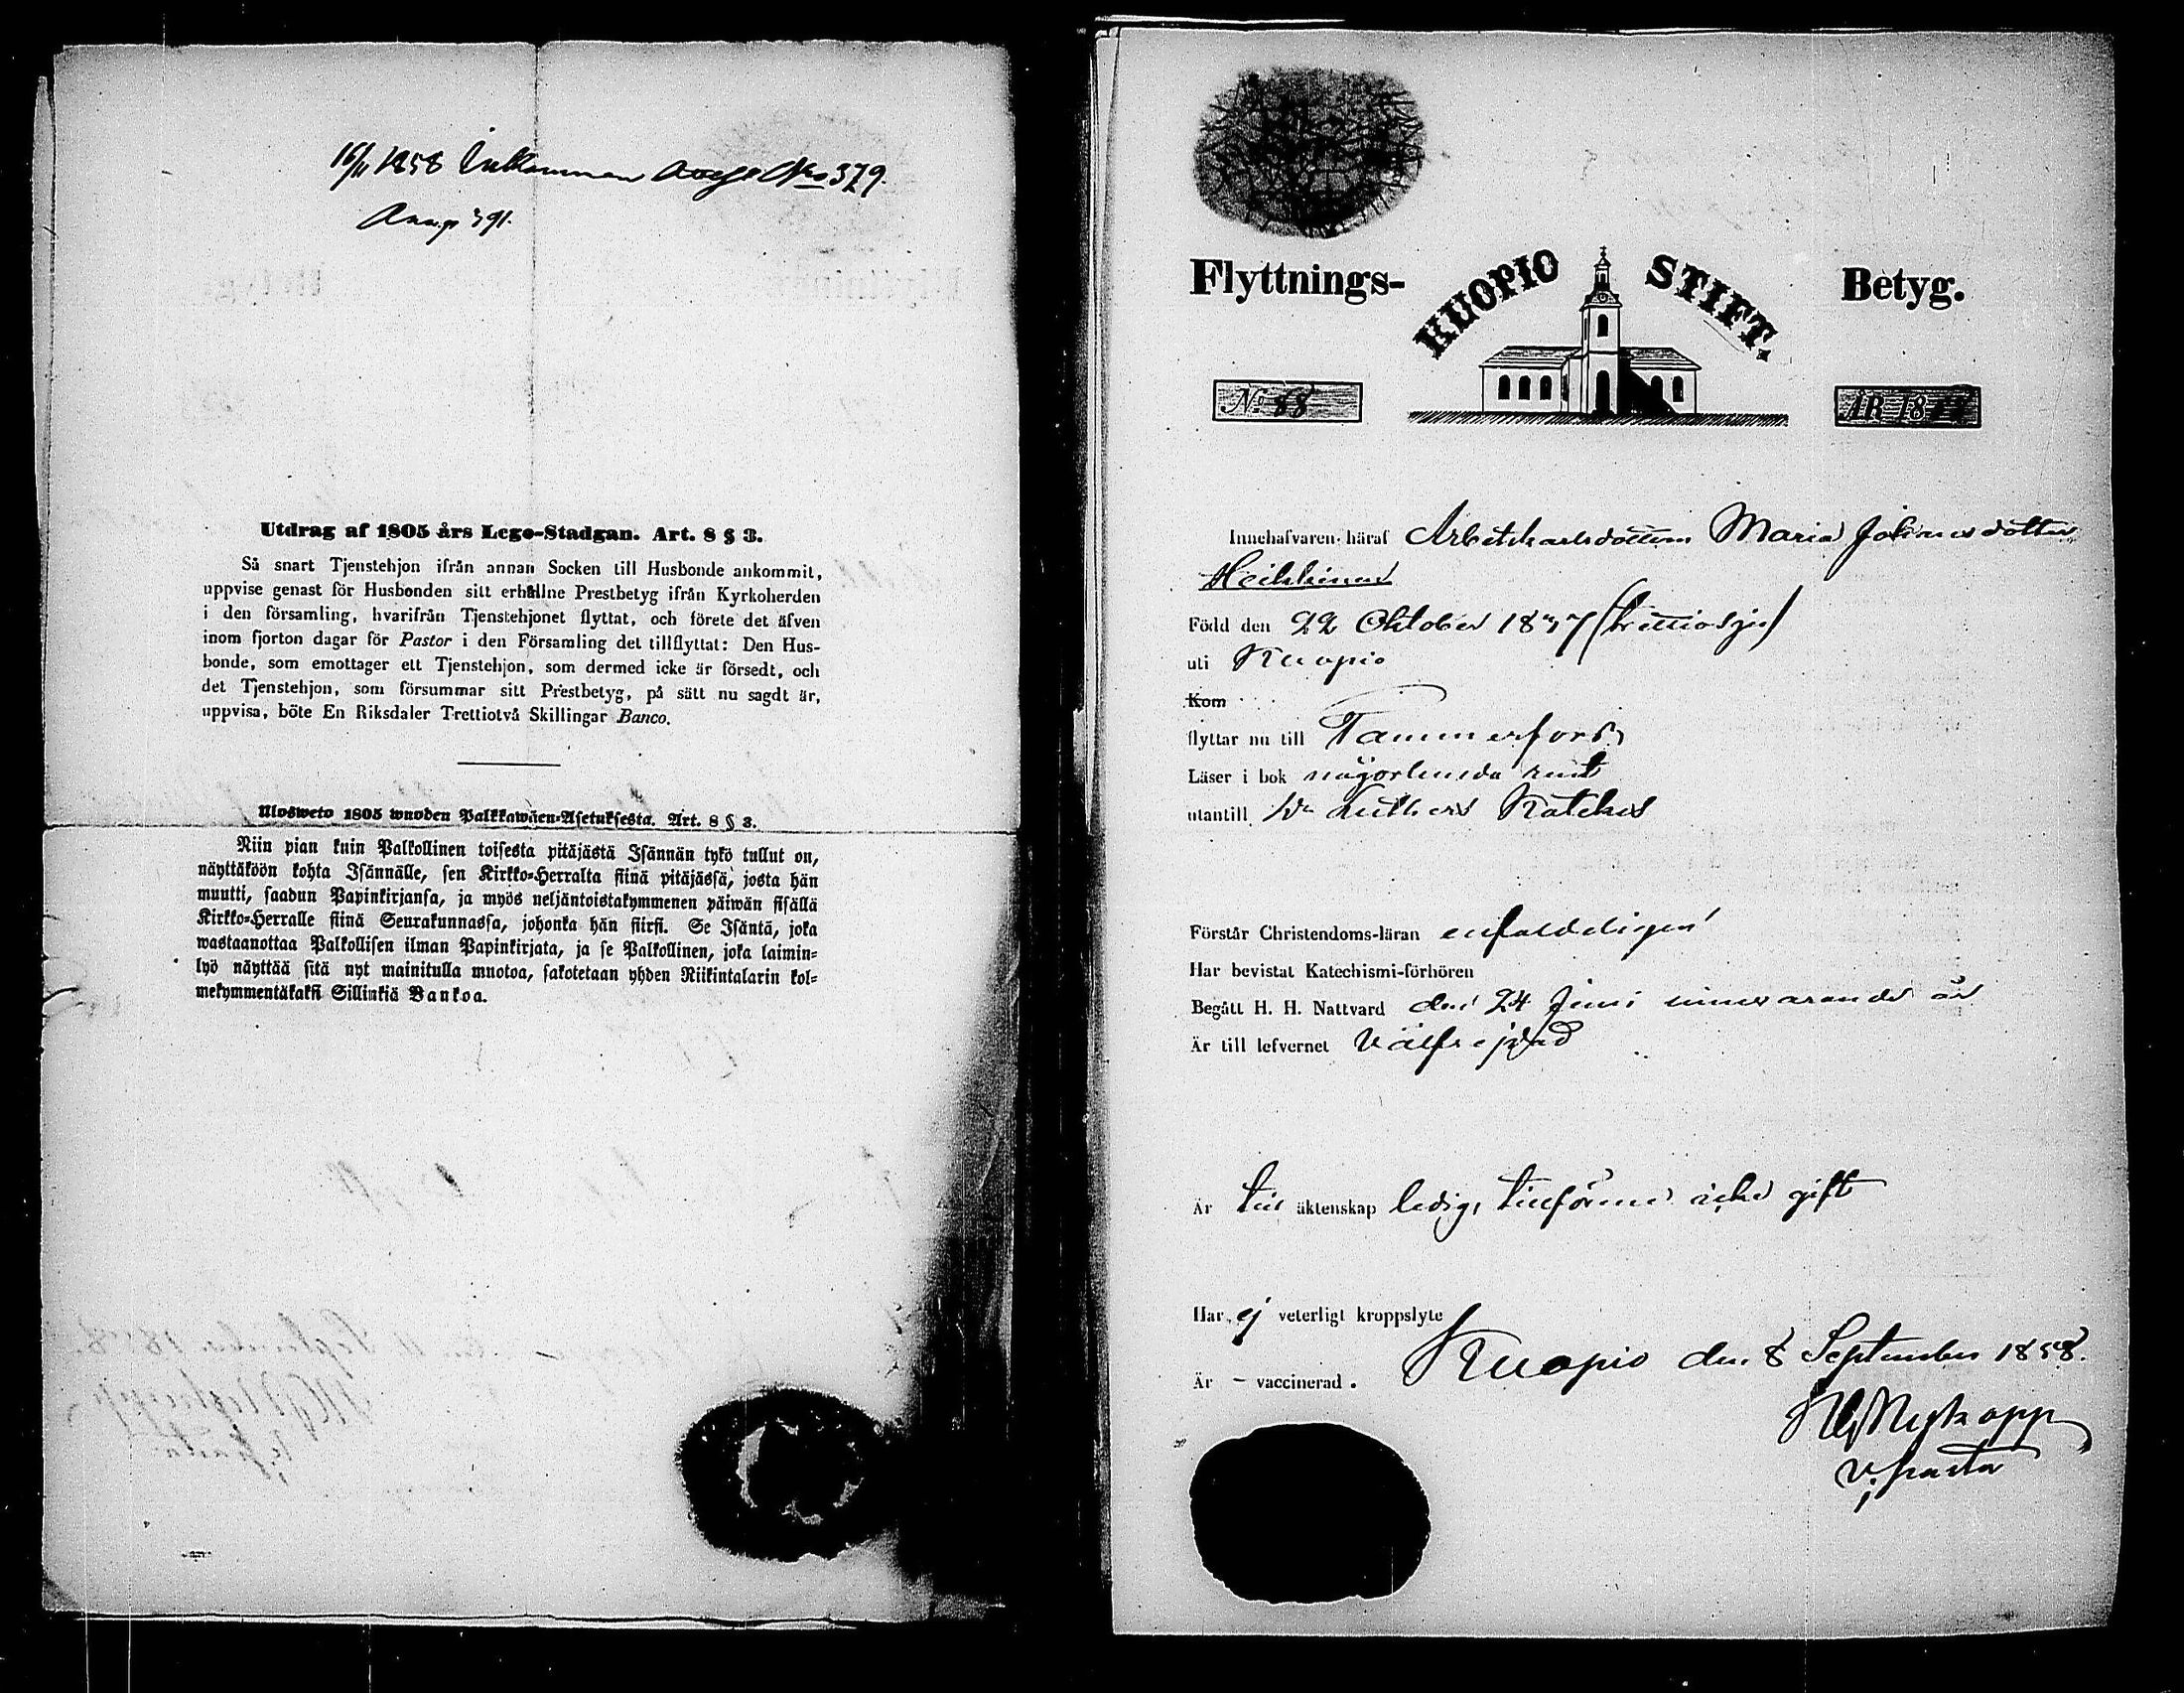 16/11 1858 Inkommen No 379.
391.
Utdrag af 1805 års Lego-Stadgan. Art. 8 § 3.
Så snart Tjenstehjon ifrån annan Socken till Husbonde ankommit,
uppvise genast för Husbonden sitt erhållne Prestbetyg ifrån Kyrkoherden
i den församling, hvarifrån Tjenstehjonet flyttat, och förete det äfven
inom fjorton dagar för Pastor i den Församling det tillflyttat: Den Hus-
bonde, som emottager ett Tjenstehjon, som dermed icke är försedt, och
det Tjenstehjon, som försummar sitt Prestbetyg, på sätt nu sagdt är,
uppvisa, böte En Riksdaler Trettiotvå Skillingar Banco.
Ulosweto 1805 wuoden Palkkawäen-Asetuksesta. Art. 8 § 3.
Niin pian kuin Palkollinen toisesta pitäjästä Isännän tykö tullut on,
näyttäköön kohta Isännälle, sen Kirkko-Herralta siinä pitäjässä, josta hän
muutti, saadun Papinkirjansa, ja myös neljäntoistakymmenen päiwän sisällä
Kirkko-Herralle siinä Seurakunnassa, johonka hän siirsi. Se Isäntä, joka
wastaanottaa Palkollisen ilman Papinkirjata, ja se Palkollinen, joka laimin-
lyö näyttää sitä nyt mainitulla muotoa, sakotetaan yhden Riikintalarin kol-
mekymmentäkaksi Sillinkiä Bankoa.
Flyttnings- KUOPIO STIFT. Betyg.
No 88 ÅR 18
Innehafvaren häraf Arbetskarlsdottern Maria Johansdotter
Heikkinen
Född den 22 Oktober 1837 (trettiosju)
uti Kuopio
Kom
flyttar nu till Tammerfors
Läser i bok någorlunda rent
utantill Dr Luthers Kateches
Förstår Christendoms-läran enfaldeligen
Har bevistat Katechismi-förhören
Begått H. H. Nattvard den 24 Juni innevarande år
Är till lefvernet välfrejdad
Är till äktenskap ledig, tillförene icke gift
Har ej veterligt kroppslyte
Är – vaccinerad. Kuopio den 8 September 1858.
Nykopp
v. pastor